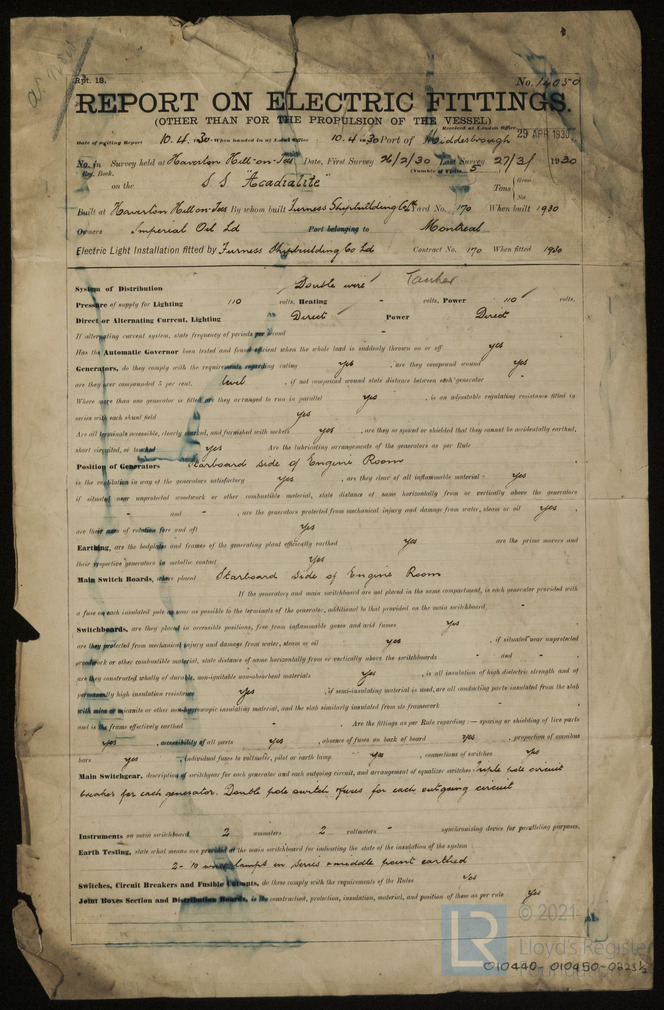 Rpt. 13.
No. 14050
REPORT ON ELECTRIC FITTINGS.
(OTHER THAN FOR THE PROPULSION OF THE VESSEL)
Received at London Office 29 APR 1930
Date of writing Report 10.4.30 When handed in at Local Office 10.4.30 Port of Middlesbrough
No. in Survey held at Haverton Hill-on-Tees Date, First Survey 26/2/30 Last Survey 27/3/ 1930
Reg. Book. (Number of Visits 5
on the S.S. "Acadialite" Tons { Gross Net
Built at Haverton Hill on-Tees By whom built Furness Shipbuilding Co Ltd Yard No. 170 When built 1930
Owners Imperial Oil Ld Port belonging to Montreal
Electric Light Installation fitted by Furness Shipbuilding Co Ld Contract No. 170 When fitted 1930
System of Distribution Double wire Tanker
Pressure of supply for Lighting 110 volts, Heating - volts, Power 110 volts.
Direct or Alternating Current, Lighting Direct Power Direct
If alternating current system, state frequency of periods per second -
Has the Automatic Governor been tested and found efficient when the whole load is suddenly thrown on or off yes
Generators, do they comply with the requirements regarding rating yes , are they compound wound yes
are they over compounded 5 per cent. level , if not compound wound state distance between each generator -
Where more than one generator is fitted are they arranged to run in parallel yes , is an adjustable regulating resistance fitted in
series with each shunt field yes
Are all terminals accessible, clearly marked, and furnished with sockets yes , are they so spaced or shielded that they cannot be accidentally earthed,
short circuited, or touched yes Are the lubricating arrangements of the generators as per Rule
Position of Generators Starboard side of Engine Room
is the ventilation in way of the generators satisfactory yes , are they clear of all inflammable material yes
if situated near unprotected woodwork or other combustible material, state distance of same horizontally from or vertically above the generators
- and - , are the generators protected from mechanical injury and damage from water, steam or oil yes ,
are their axes of rotation fore and aft yes
Earthing, are the bedplates and frames of the generating plant efficiently earthed yes are the prime movers and
their respective generators in metallic contact yes
Main Switch Boards, where placed Starboard side of Engine Room
If the generators and main switchboard are not placed in the same compartment, is each generator provided with
a fuse on each insulated pole as near as possible to the terminals of the generator, additional to that provided on the main switchboard -
Switchboards, are they placed in accessible positions, free from inflammable gases and acid fumes yes ,
are they protected from mechanical injury and damage from water, steam or oil yes , if situated near unprotected
woodwork or other combustible material, state distance of same horizontally from or vertically above the switchboards - and - ,
are they constructed wholly of durable, non-ignitable non-absorbent materials yes , is all insulation of high dielectric strength and of
permanently high insulation resistance yes , if semi-insulating material is used, are all conducting parts insulated from the slab
with mica or micanite or other non-hygroscopic insulating material, and the slab similarly insulated from its framework - ,
and is the frame effectively earthed - Are the fittings as per Rule regarding :— spacing or shielding of live parts
yes , accessibility of all parts yes , absence of fuses on back of board yes , proportion of omnibus
bars yes , individual fuses to voltmeter, pilot or earth lamp yes , connections of switches yes
Main Switchgear, description of switchgear for each generator and each outgoing circuit, and arrangement of equalizer switches Triple pole circuit
breaker for each generator. Double pole switch & fuses for each outgoing circuit
Instruments on main switchboard 2 ammeters 2 voltmeters - synchronising device for paralleling purposes.
Earth Testing, state what means are provided at the main switchboard for indicating the state of the insulation of the system
2- 10 watt lamps in series & middle point earthed
Switches, Circuit Breakers and Fusible Cutouts, do these comply with the requirements of the Rules yes
Joint Boxes Section and Distribution Boards, is the construction, protection, insulation, material, and position of these as per rule yes
LR © 2021
Lloyd's Register
Foundation
010440-010450-0223½